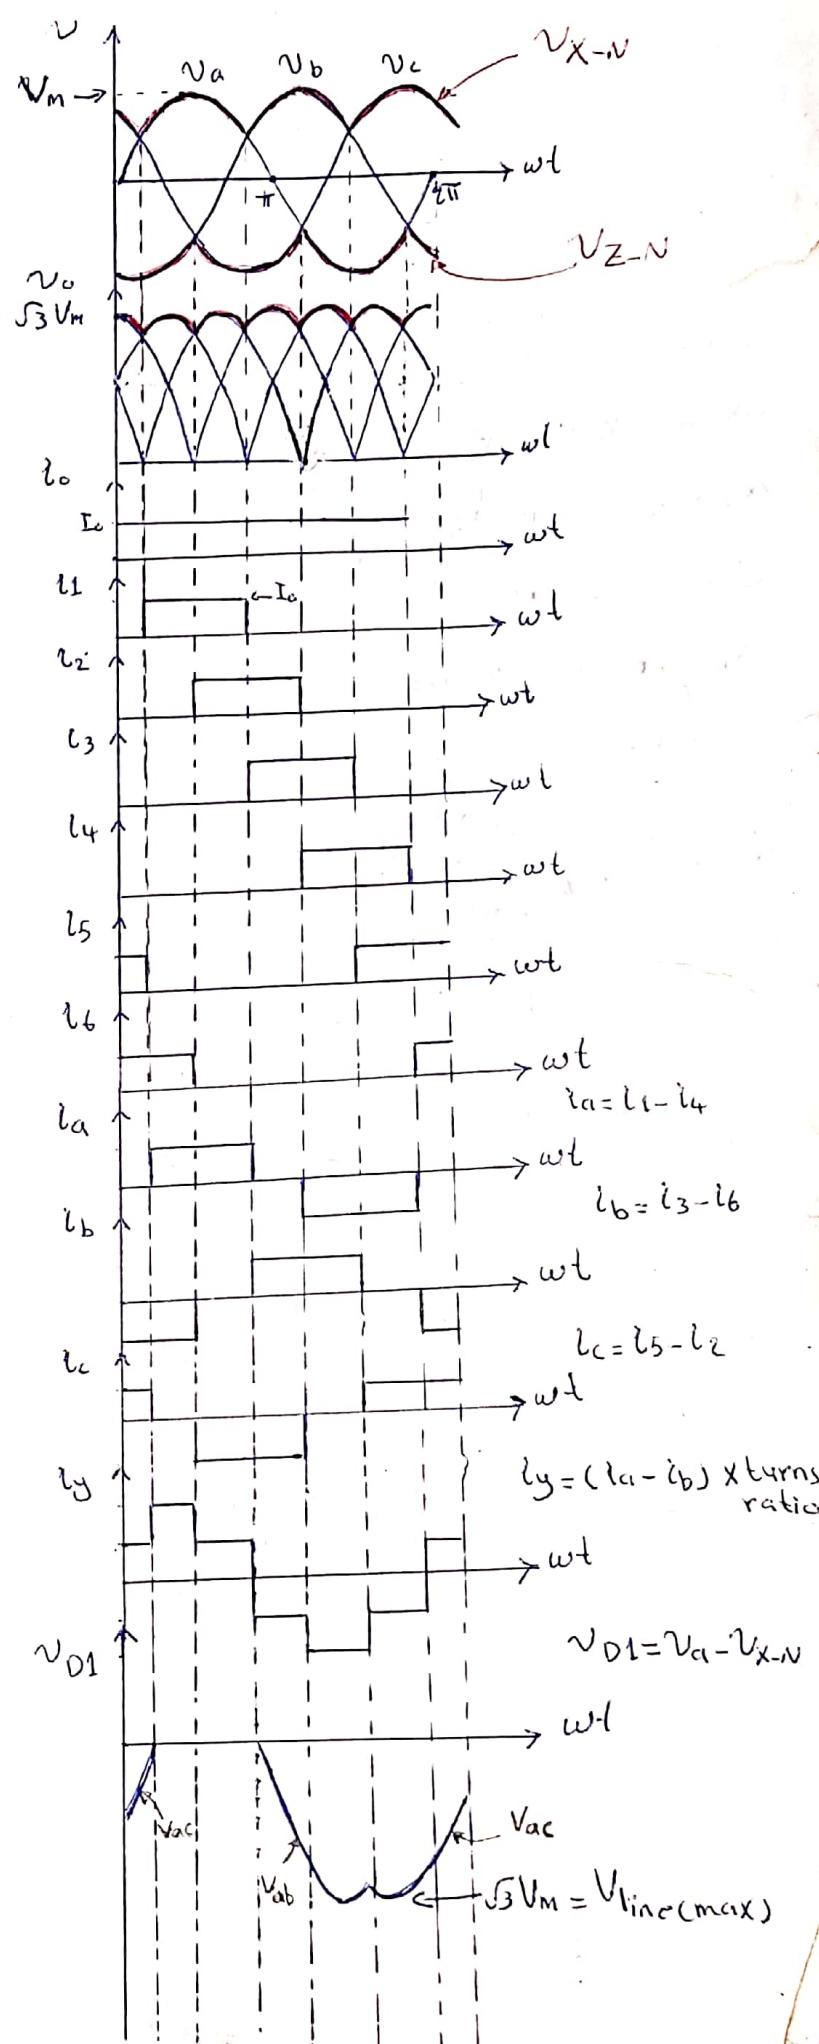 v
Vm →
va vb vc
vX-N
ωt
π
2π
vZ-N
vo
√3 Vm
ωt
io
Io
ωt
i1
Io
ωt
i2
ωt
i3
ωt
i4
ωt
i5
ωt
i6
ωt
ia = i1 - i4
ia
ωt
ib = i3 - i6
ib
ωt
ic = i5 - i2
ic
ωt
iy
iy = (ia - ib) x turns
ratio
ωt
vD1
vD1 = va - vX-N
ωt
Vac
Vac
Vab
√3 Vm = Vline(max)